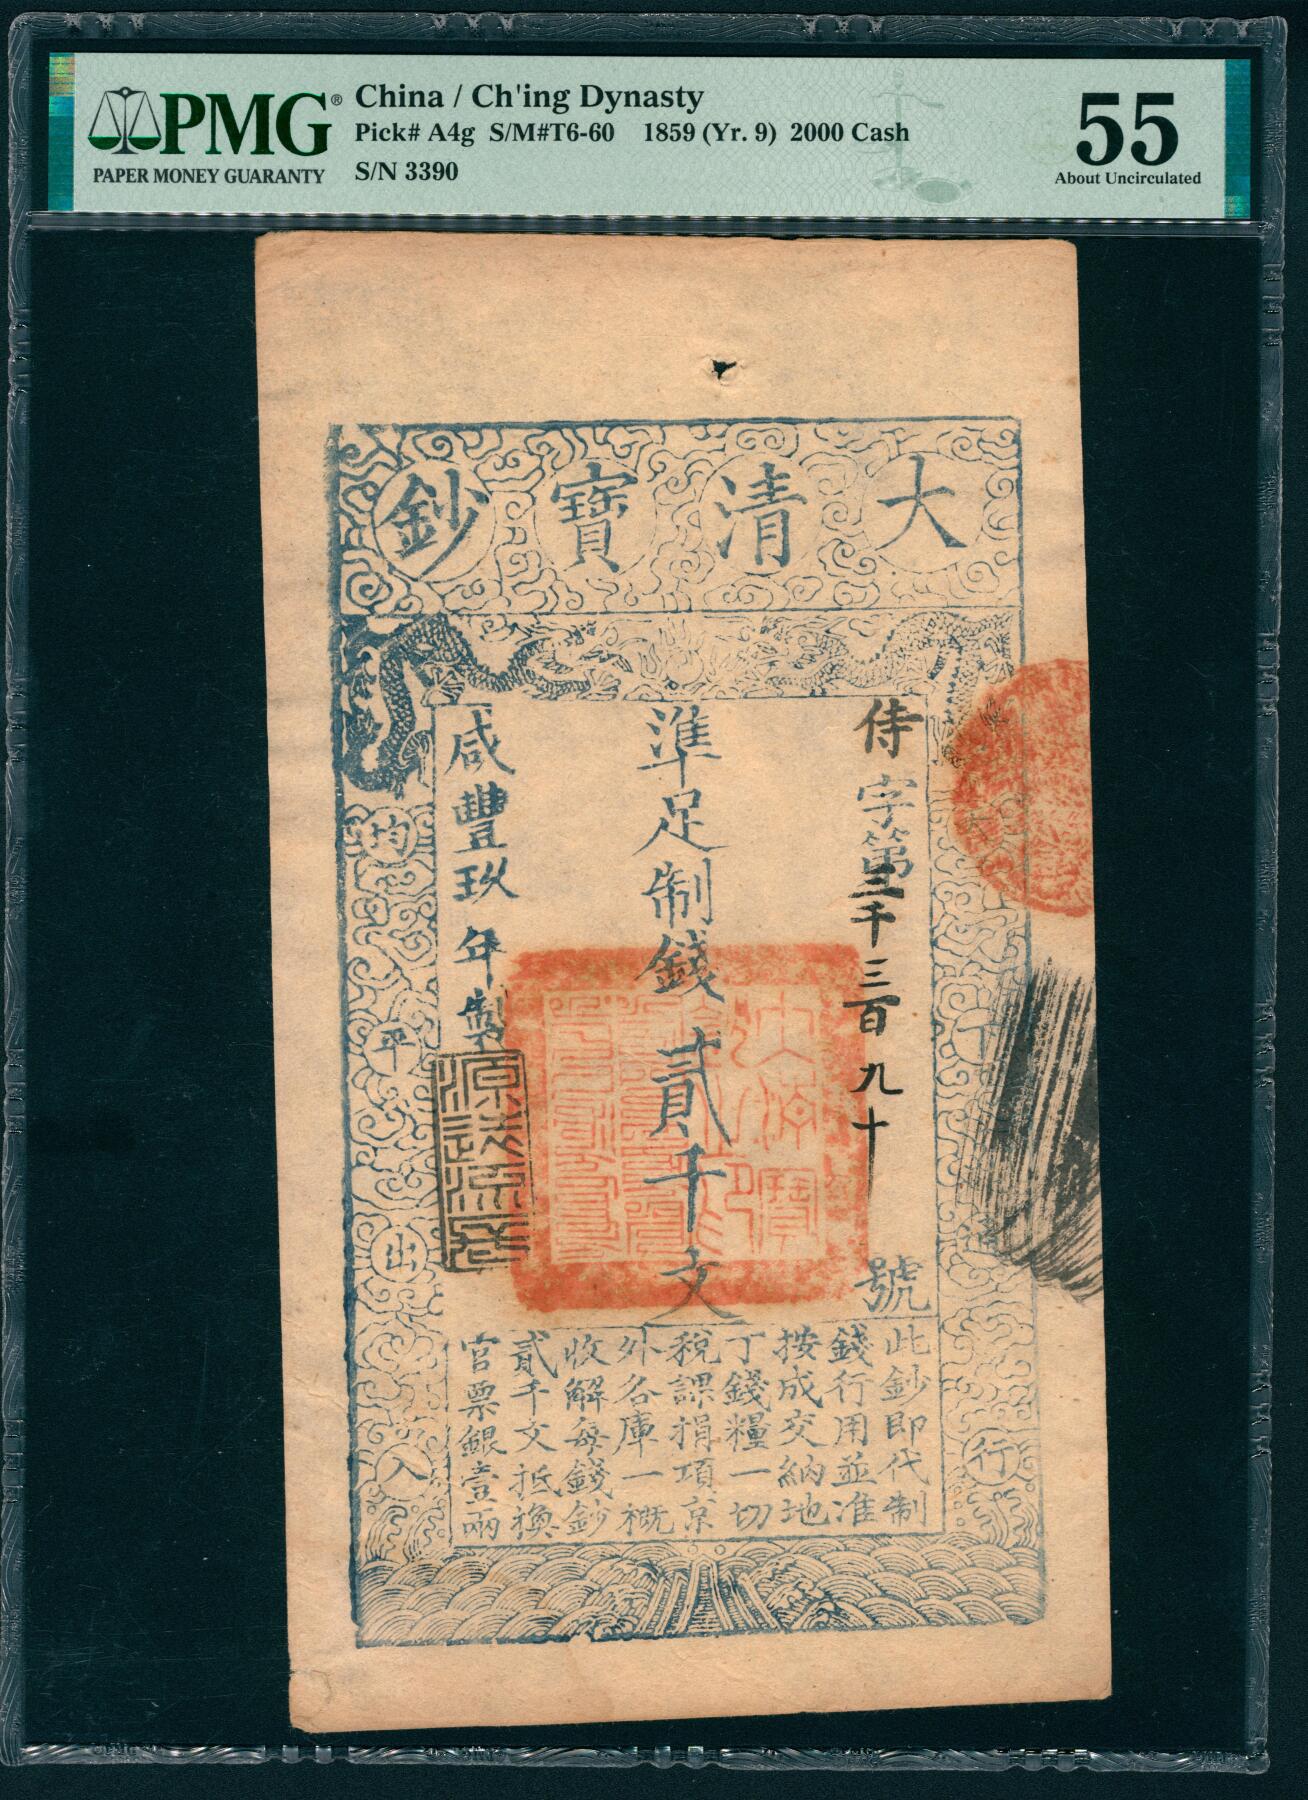 PMG®
PAPER MONEY GUARANTY
China / Ch'ing Dynasty
Pick# A4g S/M#T6-60 1859 (Yr. 9) 2000 Cash
S/N 3390
55
About Uncirculated
大清寶鈔
侍字第三千三百九十號
準足制錢貳千文
咸豐玖年製
此鈔即代制
錢行用並准
按成交納地
丁錢糧一切
稅課捐項京
外各庫一概
收解每錢鈔
貳千文抵換
官票銀壹兩
天下通行
均平出入
源遠流長